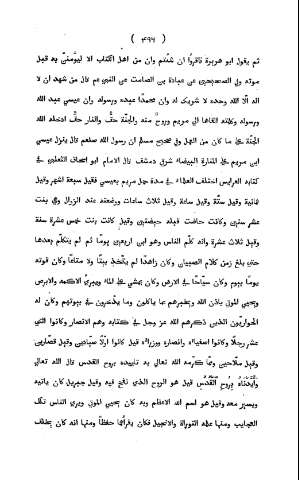 ( ٤٩٧ )
ثم يقول ابو هريرة فاقرؤا ان شئتم وان من اهل الكتاب الا ليؤمنن به قبل
موته وفي الصحيحين عن عبادة بن الصامت عن النبي صلعم قال من شهد ان لا
اله الّا الله وحده لا شريك له وان محمدًا عبده ورسوله وان عيسى عبد الله
ورسوله وكلمته القاها الى مريم وروح منه والجنّة حقّ والنار حقّ ادخله الله
الجنّة على ما كان من العمل وفي صحيح مسلم ان رسول الله صلعم قال ينزل عيسى
ابن مريم على المنارة البيضاء شرقي دمشق قال الامام ابو اسحاق الثعلبي في
كتابه العرايس اختلف العلماء في مدة حمل مريم بعيسى فقيل تسعة اشهر وقيل
ثمانية وقيل ستّة وقيل ساعة وقيل ثلاث ساعات ووضعته عند الزوال وهي بنت
عشر سنين وكانت حاضت قبله حيضتين وقيل كانت بنت خمس عشرة سنة
وقيل ثلاث عشرة وانه كلّم الناس وهو ابن اربعين يومًا ثم لم يتكلّم بعدها
حتى بلغ زمن كلام الصبيان وكان زاهدًا لم يتّخذ بيتًا ولا متاعًا وكان قوته
يومًا بيوم وكان سيّاحًا في الارض وكان يمشي على الماء ويبرئ الاكمه والابرص
ويحيي الموتى باذن الله ويخبرهم بما ياكلون وما يدّخرون في بيوتهم وكان له
الحواريّون الذين ذكرهم الله عز وجل في كتابه وهم الانصار وكانوا اثني
عشر رجلًا وكانوا اصفياء وانصاره ووزراءه قيل كانوا اوّلًا صيّادين وقيل قصّارين
وقيل ملّاحين وممّا كرّمه الله تعالى به تاييده بروح القدس قال الله تعالى
وأيّدناه بروح القدس قيل هو الروح الذي نفخ فيه وقيل جبريل كان ياتيه
ويسير معه وقيل هو اسم الله الاعظم وبه كان يحيي الموتى ويري الناس تلك
العجايب ومنها علمه التوراة والانجيل فكان يقرأهما حفظًا ومنها انه كان يخلق